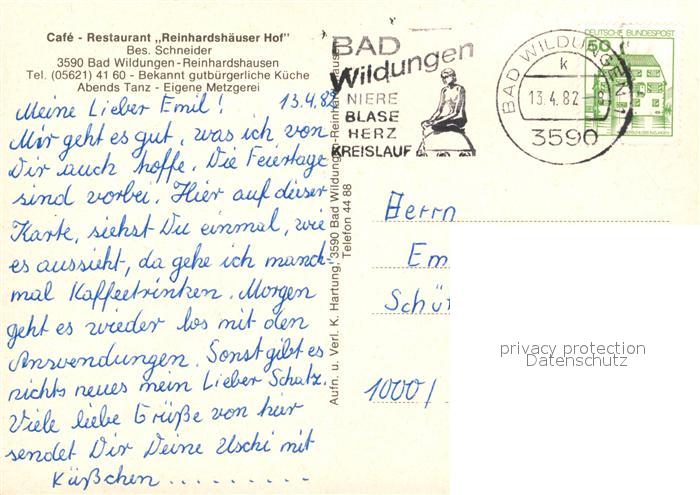 Café - Restaurant „Reinhardshäuser Hof"
Bes. Schneider
3590 Bad Wildungen-Reinhardshausen
Tel. (05621) 41 60 - Bekannt gutbürgerliche Küche
Abends Tanz - Eigene Metzgerei
13.4.82
Meine Lieber Emil!
Mir geht es gut, was ich von
Dir auch hoffe. Die Feiertage
sind vorbei. Hier auf dieser
Karte, siehst Du einmal, wie
es aussieht, da gehe ich manch-
mal Kaffeetrinken. Morgen
geht es wieder los mit den
Anwendungen. Sonst gibt es
nichts neues mein Lieber Schatz.
Viele liebe Grüße von hier
sendet Dir Deine Uschi mit
Küßchen ..........
Aufn. u. Verl. K. Hartung, 3590 Bad Wildungen-Reinhardshausen
Telefon 44 88
BAD
Wildungen
NIERE
BLASE
HERZ
KREISLAUF
BAD WILDUNGEN 1
k
13.4.82
3590
DEUTSCHE BUNDESPOST
50
Herrn
Em
Schü
1000/
privacy protection
Datenschutz